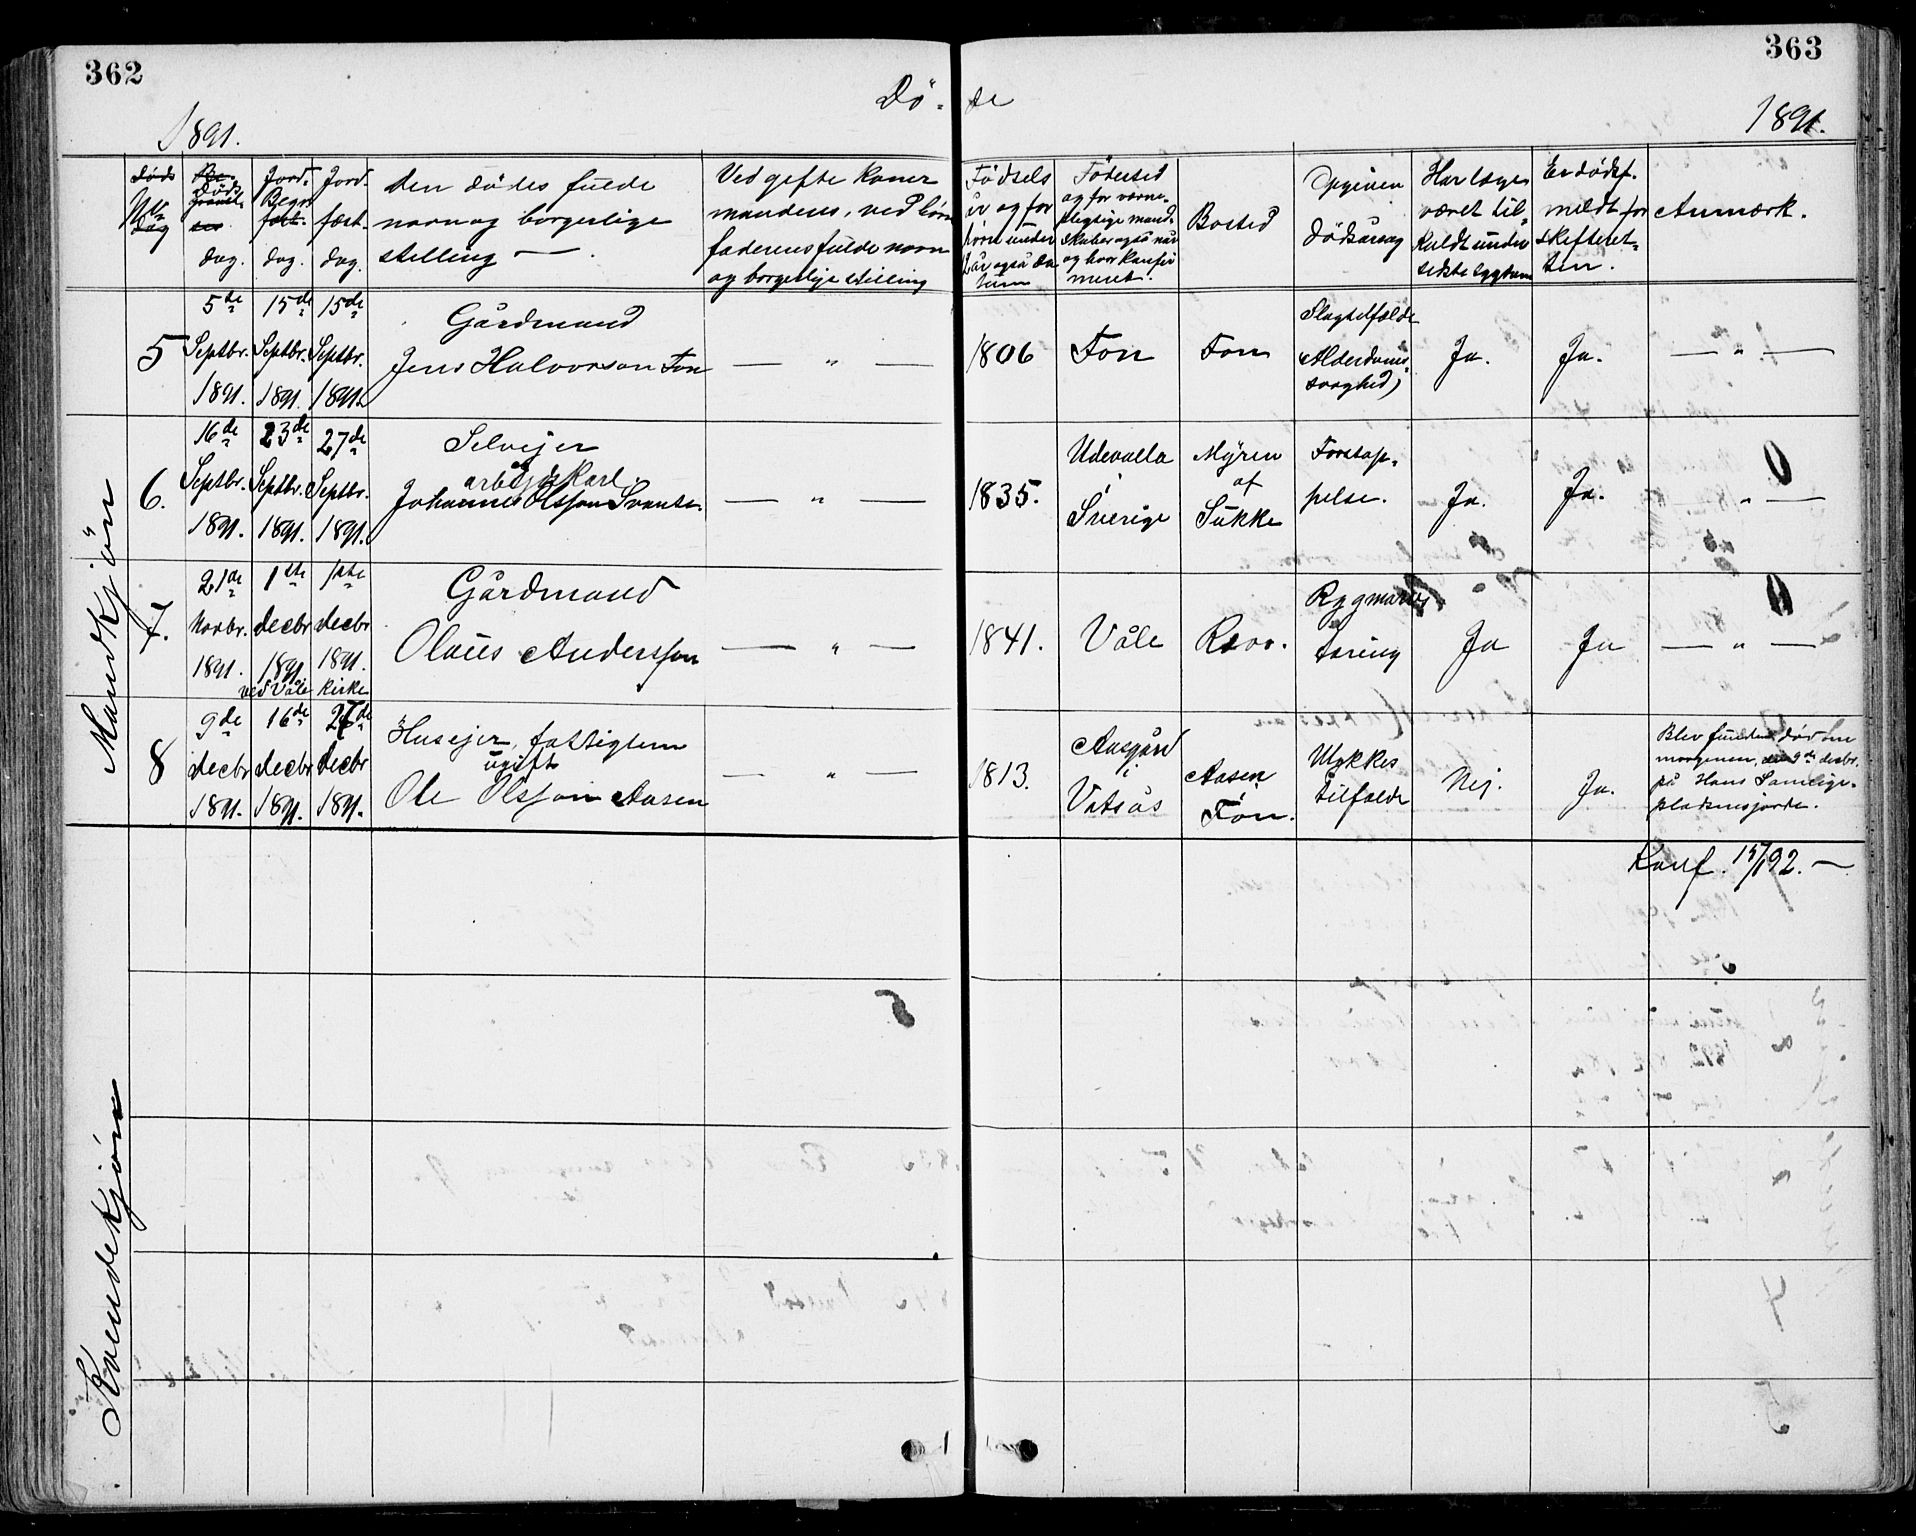 362
363
Dö-
de
1891.
1891.
No
Døds
dag.
Jord.
Begr.
dag.
Jord-
fæst.
dag.
Den dødes fulde
navn og borgerlige
stilling —
Ved gifte koner
mandens, ved børn
faderens fulde navn
og borgerlige stilling
Fødsels
år og for
børn under
2 år også da
tum
Fødested
og for værne-
pligtige mand-
skaber også når
og hvor konfir
meret.
Bosted
Opgiven
dødsårsag
Har læge
været til-
kaldt under
sidste sygdom
Er dødsf.
meldt for
skifteret-
ten.
Anmærk.
Mandkjön
5
5te
Septbr.
1891.
15de
Septbr.
1891.
15de
Septbr.
1891.
Gårdmand
Jens Halvorson Fon
— " —
1806
Fon
Fon
Slagtilfælde
(Alderdoms-
svaghed)
Ja.
Ja.
— " —
6.
16de
Septbr.
1891.
23de
Septbr.
1891.
27de
Septbr.
1891.
Selvejer
og
arbejdskarl.
Johannes Olsson Svante.
— " —
1835.
Udevalla
i
Sverige
Myren
af
Sukke
Forstop-
pelse.
Ja.
Ja.
0
" —
7.
21de
Novbr.
1891.
1ste
Decbr
1891
1ste
Decbr
1891.
ved Våle Kirke
Gårdmand
Olaus Andersson
— " —
1841.
Våle
Revo.
Rygmarvs
tæring
Ja
Ja
0
— " —
8
9de
Decbr
1891.
16de
Decbr
1891.
27de
Decbr
1891.
Husejer, fattiglem
ugift
Ole Olsson Aasen
— " —
1813.
Aasgård
i
Vatsås
Aasen
i
Fon.
Ulykkes
tilfælde
Nej.
Ja.
Blev funden død om
morgenen, den 9de decbr.
på Hans
Konf. 15/1 92. —
Kvendekjön